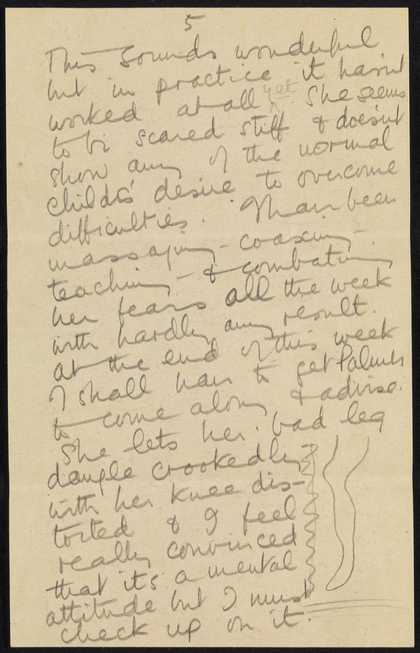 5
This sounds wonderful
but in practice it hasn't
worked at all yet. She seems
to be scared stiff & doesn't
show any of the normal
childs' desire to overcome
difficulties. I have been
massaging - coaxing -
teaching - & combating
her fears all the week
with hardly any result.
At the end of this week
I shall have to get Palmer
to come along & advise.
She lets her bad leg
dangle crookedly
with her knee dis-
torted & I feel
really convinced
that it's a mental
attitude but I must
check up on it.